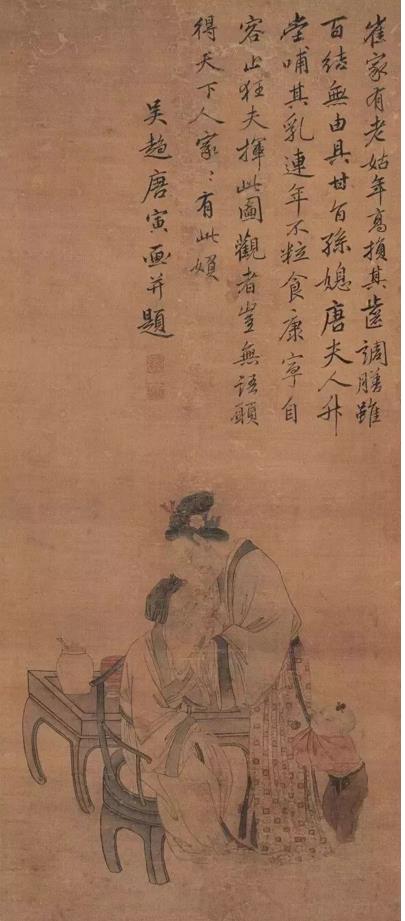 崔家有老姑年高損其齒調膳雖
百結無由具甘旨孫媳唐夫人升
堂哺其乳連年不粒食康寧自
容止狂夫揮此圖觀者豈無語願
得天下人家〻有此媍
吳趍唐寅画并題